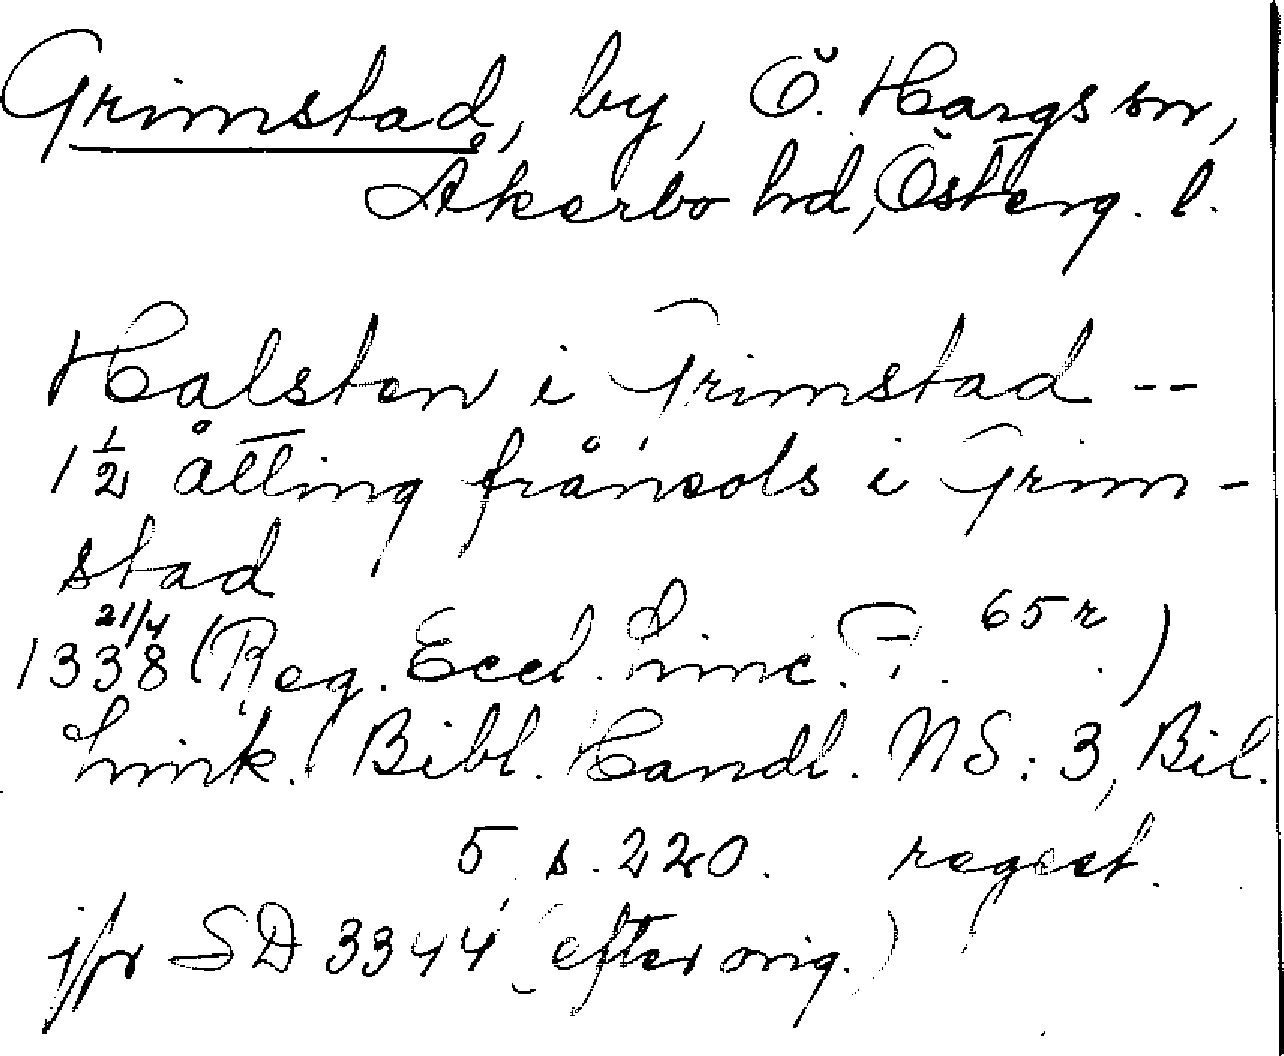 Grimstad, by, Ö. Hargs sn,
Åkerbo hd, Österg. l.
Halsten i Grimstad --
1½ åtting frånsols i Grim-
stad
21/4
1338 (Reg. Eccl. Linc. F. 65 r.)
Link. Bibl. Handl. NS: 3, Bil.
5, s. 220. regest.
jfr SD 3344 (efter orig.)